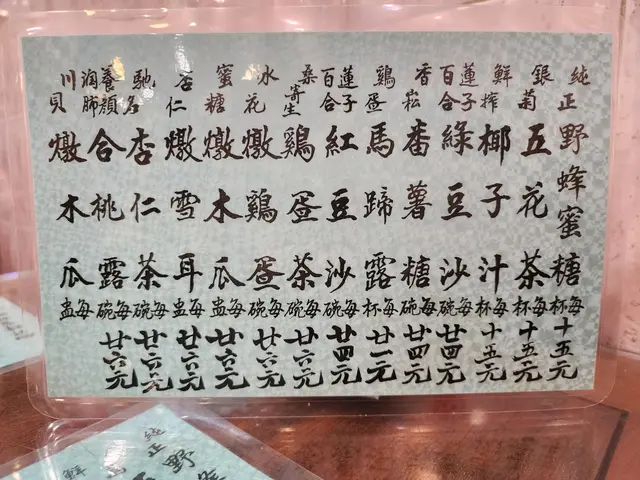 純正野蜂蜜糖每杯十五元
銀菊五花茶每杯十五元
鮮搾椰子汁每杯十五元
蓮子百合綠豆沙每碗廿四元
香菘番薯糖每碗廿四元
鷄蛋馬蹄露每杯廿一元
蓮子百合紅豆沙每碗廿四元
桑寄生鷄蛋茶每碗廿六元
冰花燉鷄蛋每碗廿六元
蜜糖燉木瓜每盅廿六元
杏仁燉雪耳每盅廿六元
馳名杏仁茶每碗廿六元
養顏潤肺合桃露每碗廿六元
川貝燉木瓜每盅
純正野
鮮